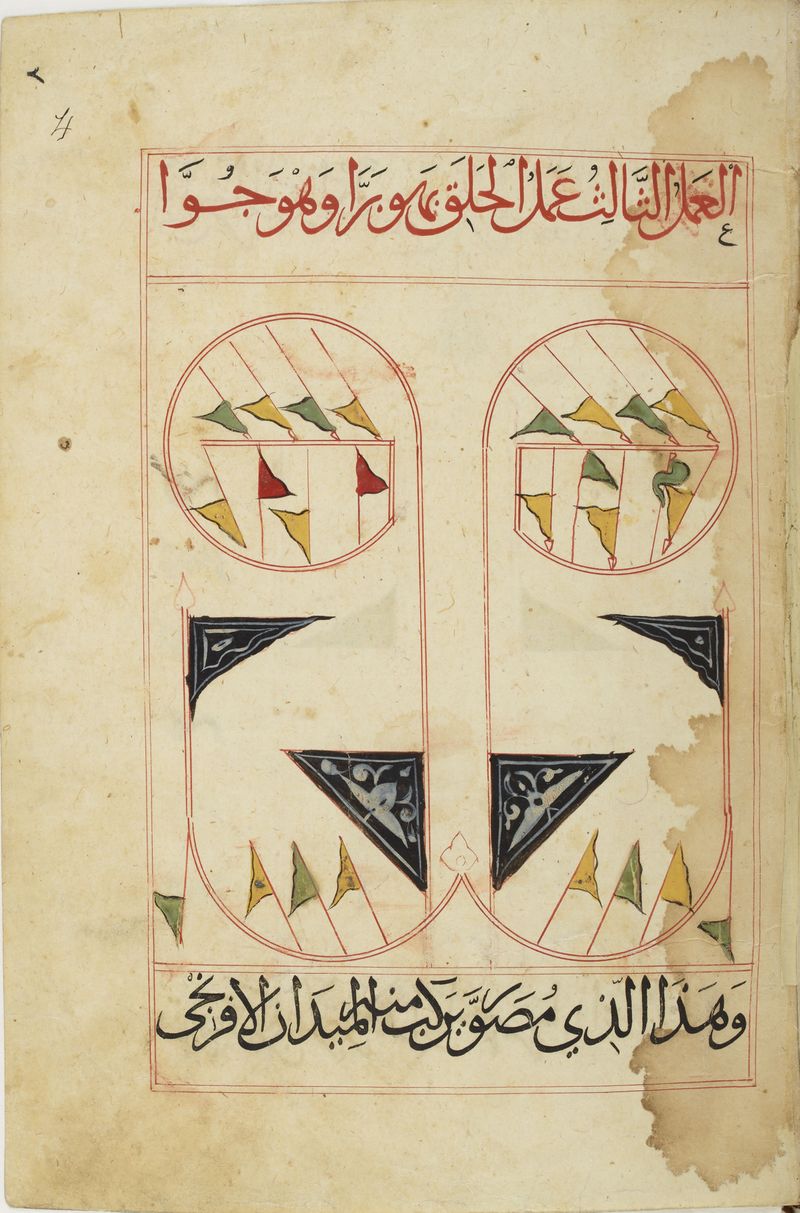 4
العَمَلُ الثَّالِثُ عَمَلُ الْحَلَقَ بَرَّا وَهْوَ جُوَّا
ع
وَهَذَا الَّذِي مُصَوَّر منه المِيدَان الافرنجى